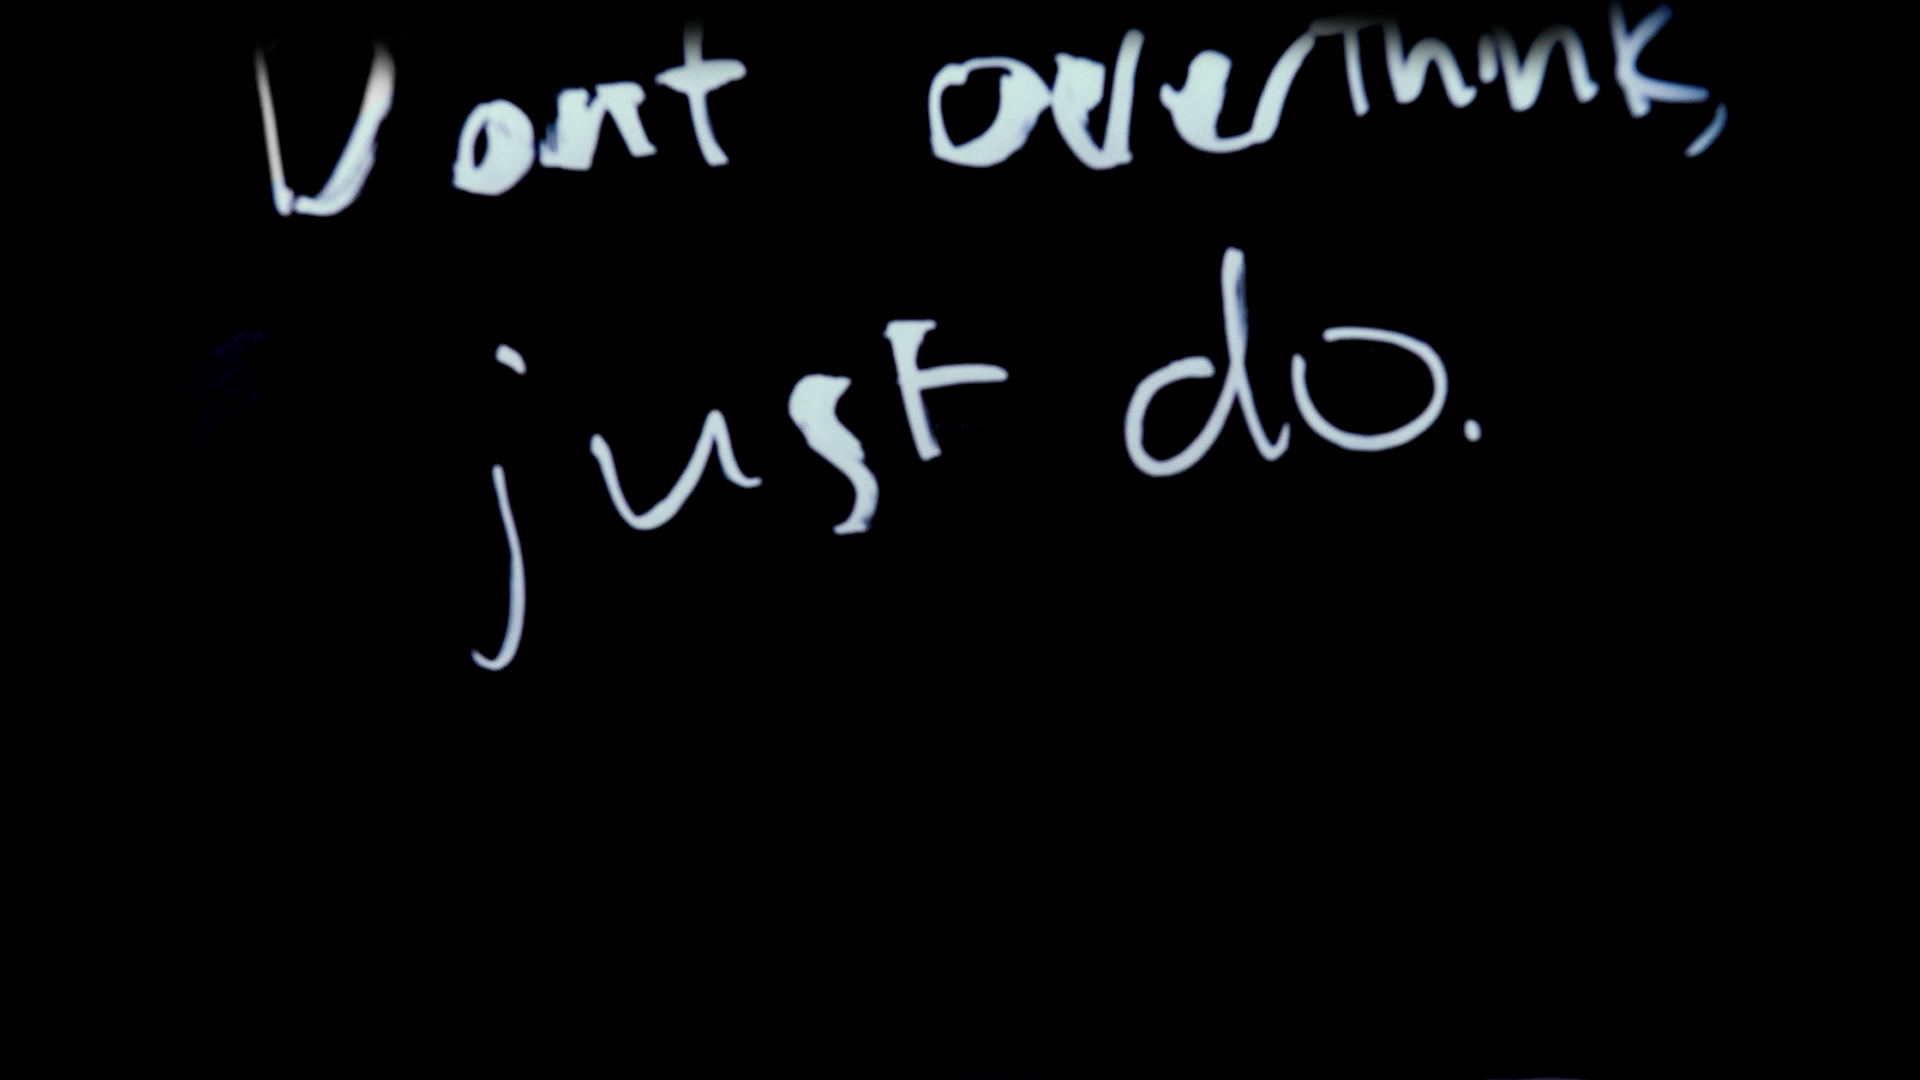 Dont overthink,
just do.